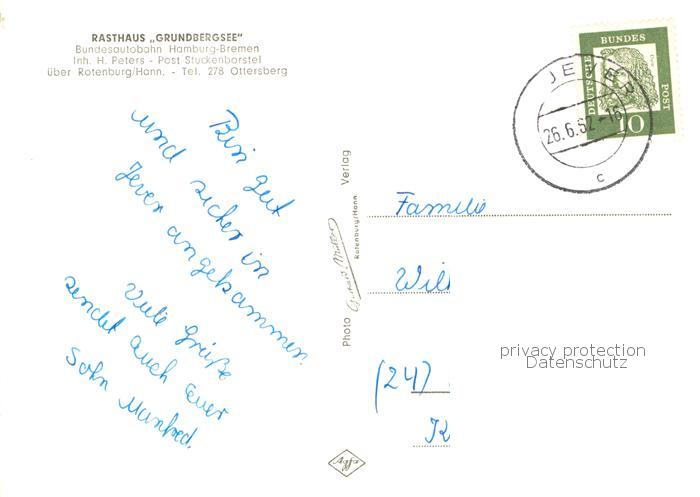 RASTHAUS „GRUNDBERGSEE"
Bundesautobahn Hamburg-Bremen
Inh. H. Peters - Post Stuckenborstel
über Rotenburg/Hann. - Tel. 278 Ottersberg
Bin gut
und sicher in
Jever angekommen.
Viele Grüße
sendet auch Euer
Sohn Manfred.
Photo
Rotenburg/Hann.
Verlag
Agfa
DEUTSCHE
BUNDES
POST
10
JEVER
26.6.62-16
c
Familie
Will
(24)
K
privacy protection
Datenschutz